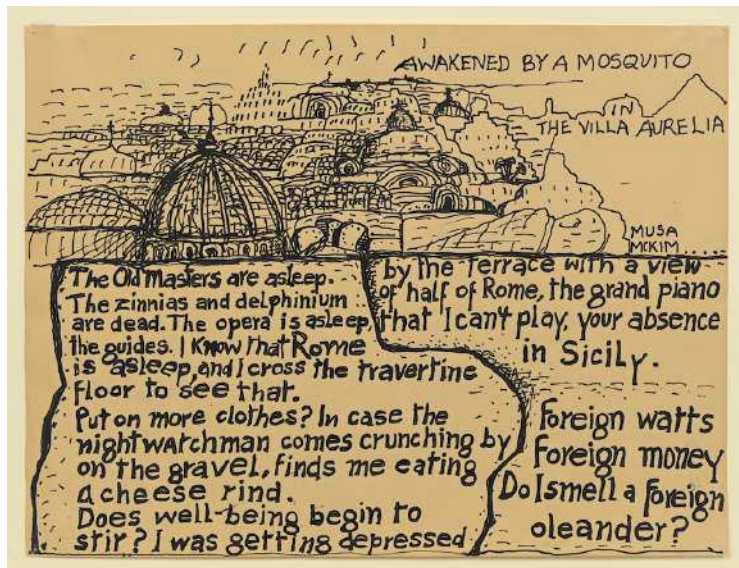 AWAKENED BY A MOSQUITO
IN
THE VILLA AURELIA
MUSA
MCKIM....
The Old Masters are asleep.
The zinnias and delphinium
are dead. The opera is asleep,
the guides. I know that Rome
is asleep, and I cross the travertine
floor to see that.
Put on more clothes? In case the
nightwatchman comes crunching by
on the gravel, finds me eating
a cheese rind.
Does well-being begin to
stir? I was getting depressed
by the terrace with a view
of half of Rome, the grand piano
that I can't play, your absence
in Sicily.
Foreign watts
Foreign money
Do I smell a foreign
oleander?